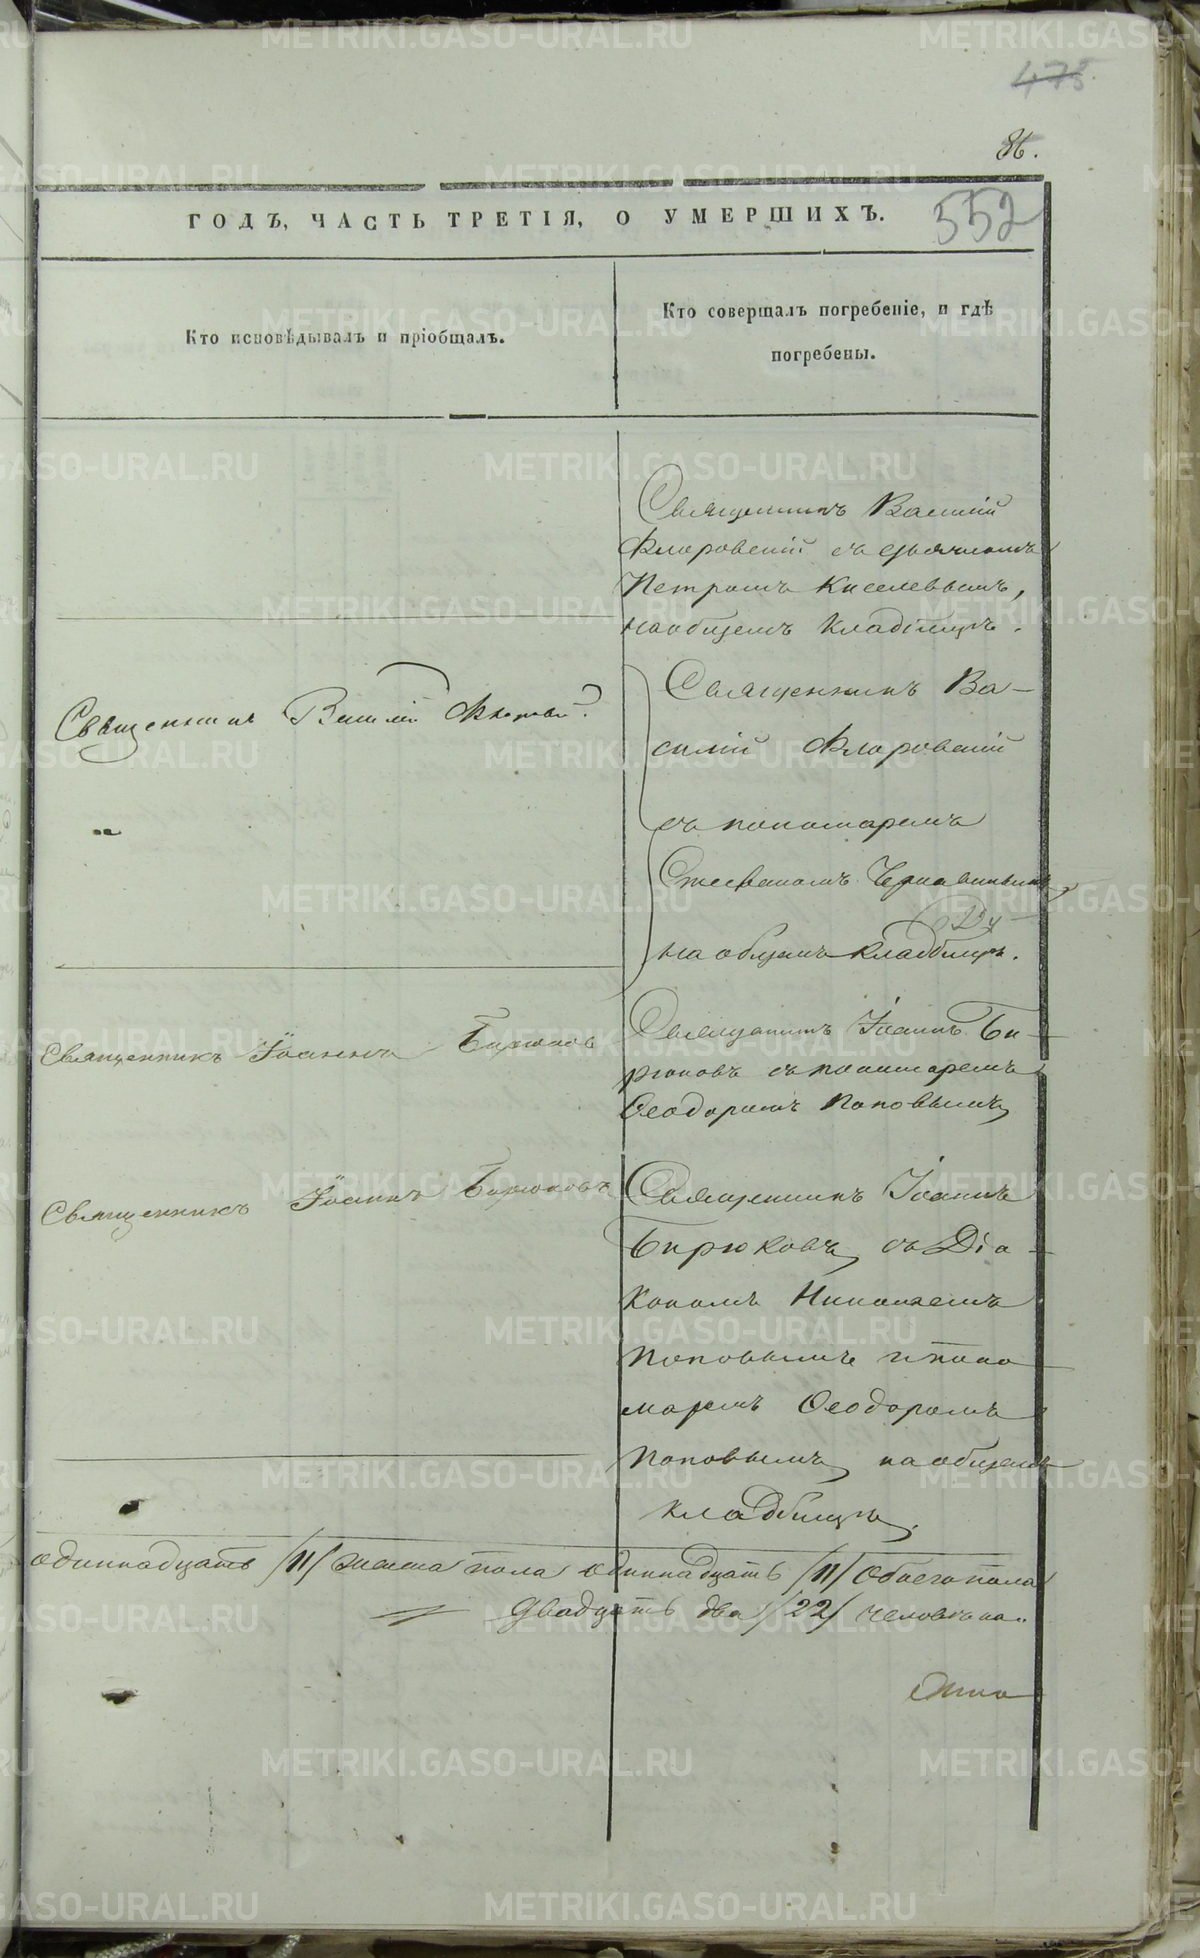 475
86.
552
ГОДЪ, ЧАСТЬ ТРЕТІЯ, О УМЕРШИХЪ.
Кто исповѣдывалъ и пріобщалъ.
Кто совершалъ погребеніе, и гдѣ
погребены.
Священникъ Василій
Флоровскій съ дьячкомъ
Петромъ Киселевымъ,
на общемъ кладбищѣ.
Священникъ Василій
Священникъ Ва-
силій Флоровскій
съ пономаремъ
Стефаномъ
на общемъ кладбищѣ.
Священникъ Іоаннъ Бирюковъ
Священникъ Іоаннъ Би-
рюковъ съ пономаремъ
Ѳеодоромъ Поповымъ
Священникъ Іоаннъ Бирюковъ
Священникъ Іоаннъ
Бирюковъ, съ Діа-
кономъ Николаемъ
Поповымъ и поно
маремъ Ѳеодоромъ
Поповымъ, на общемъ
кладбищѣ.
одиннадцать /11/ женска пола одиннадцать /11/ обоего пола
двадцать два /22/ человѣка.
METRIKI.GASO-URAL.RU